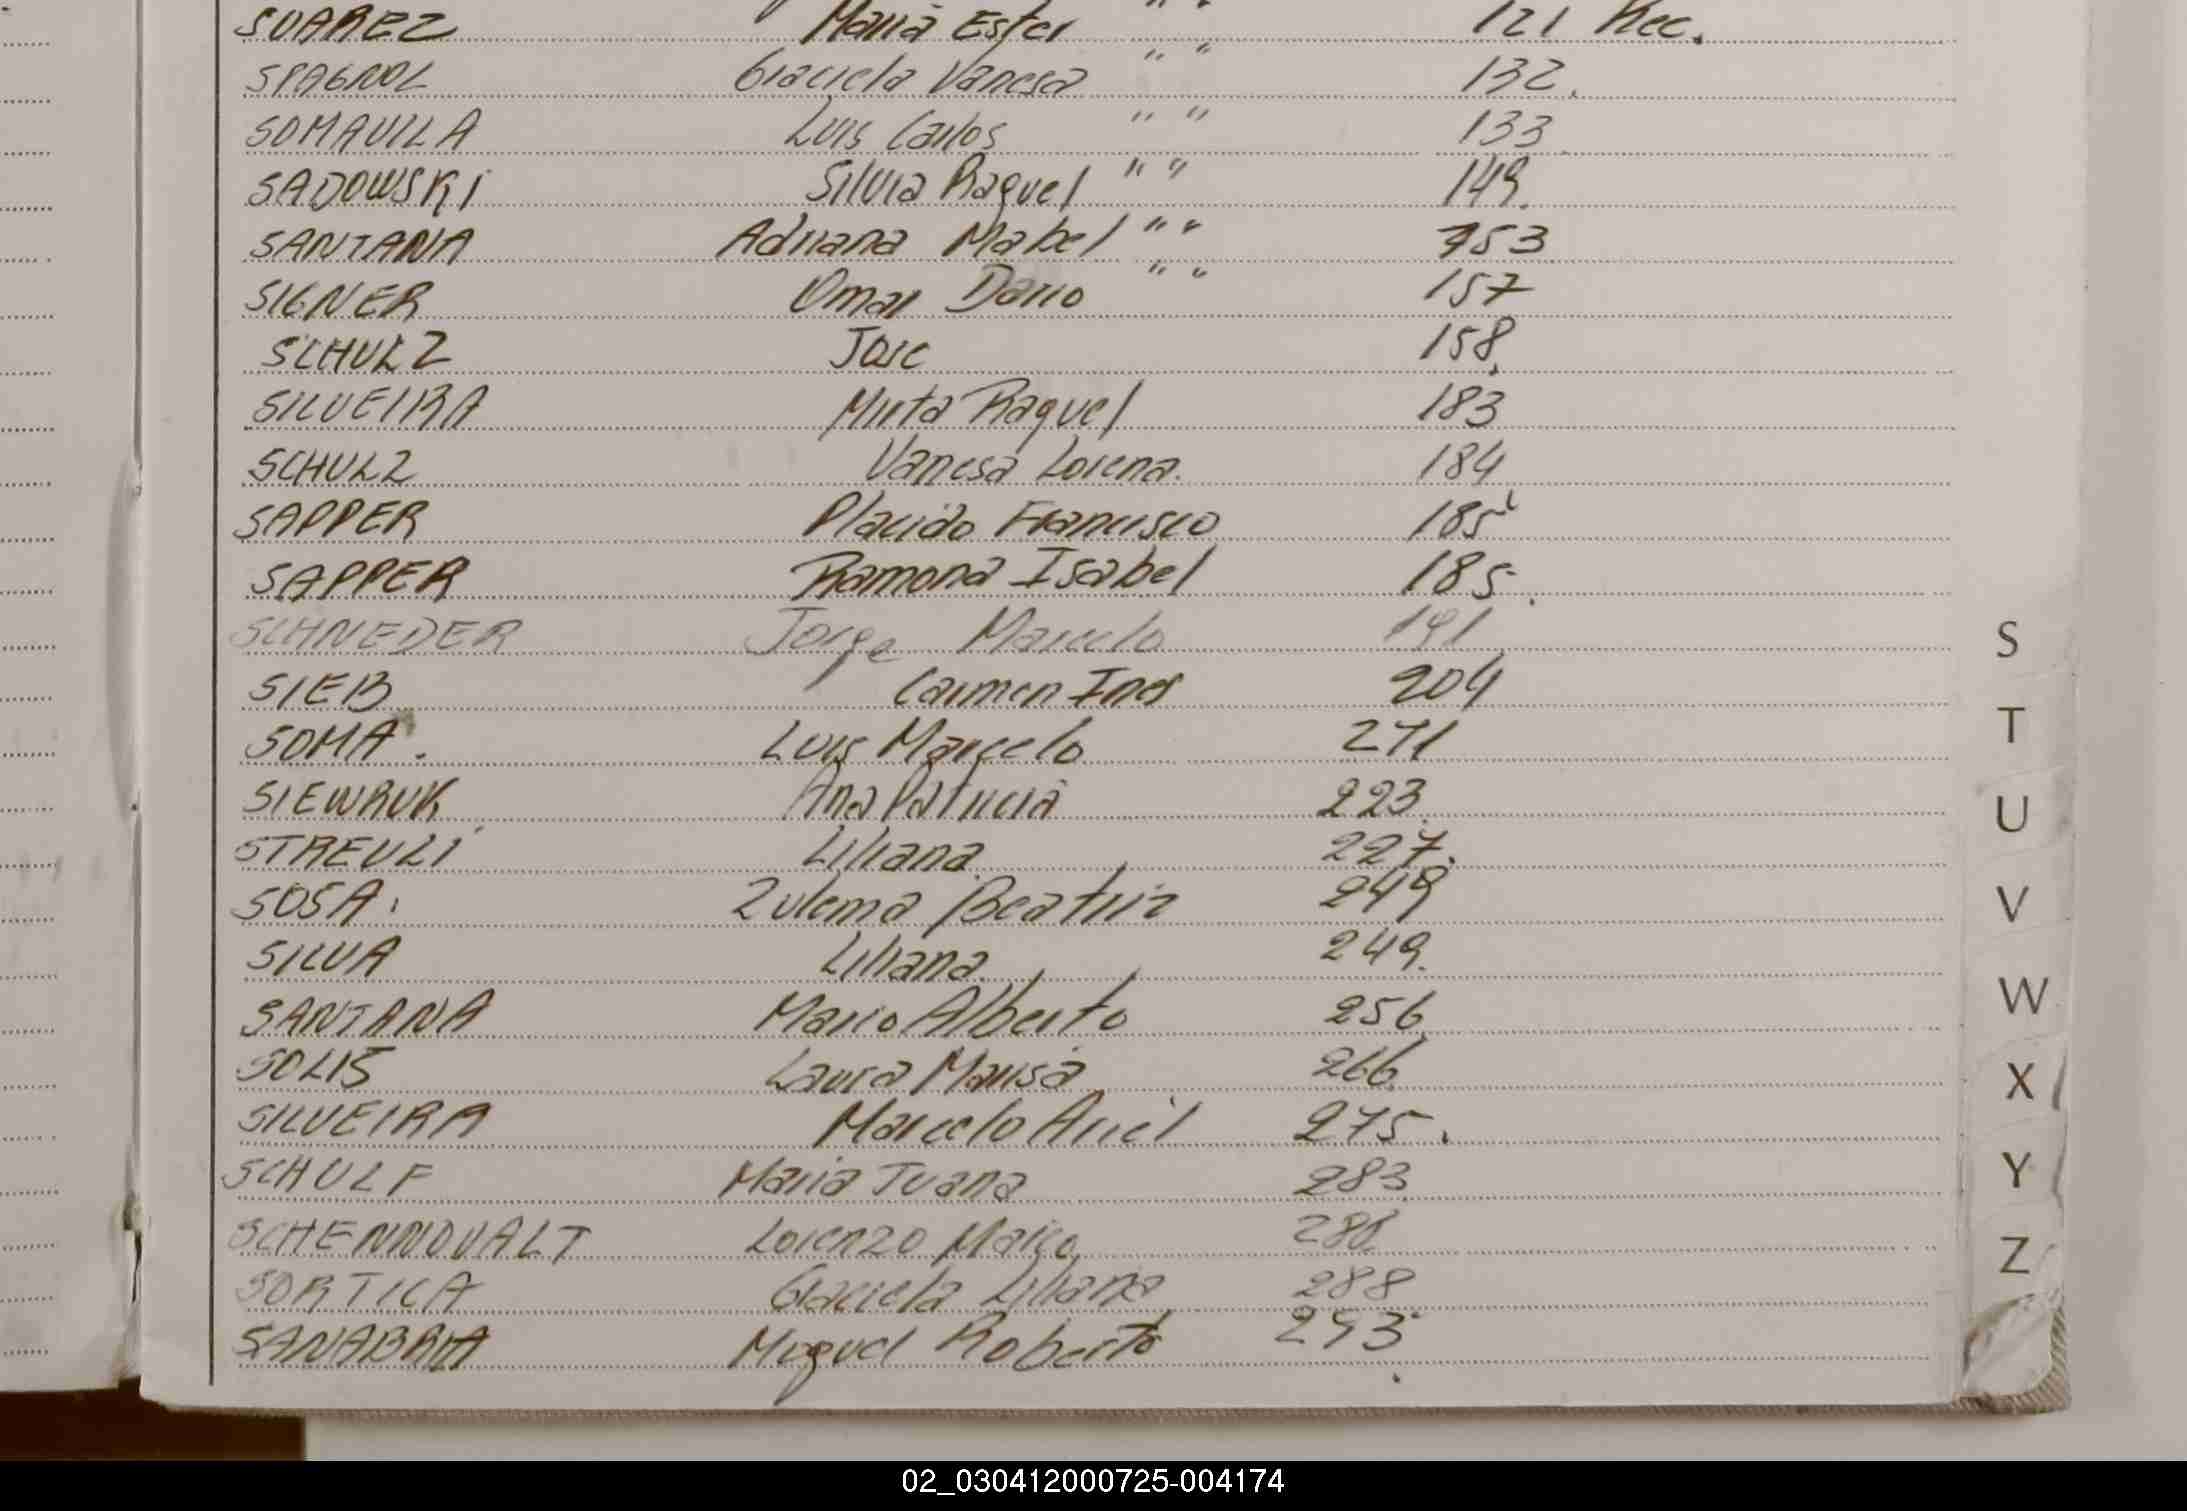 SUAREZ Maria Ester " " 121 Rec.
SPAGNOL Graciela Vanesa " " 132.
SOMAVILA Luis Carlos " " 133
SADOWSKI Silvia Raquel " " 149.
SANTANA Adriana Mabel " " 153
SIGNER Omar Dario " " 157
SCHULZ Jose 158.
SILVEIRA Mirta Raquel 183
SCHULZ Vanesa Lorena. 184
SAPPER Placido Francisco 185
SAPPER Ramona Isabel 185.
SCHNEDER Jorge Marcelo 191
SIEB Carmen Ines 204
SOMA. Luis Marcelo 271
SIEWRUK Ana Patricia 223.
STREULI Liliana. 227.
SOSA. Zulema Beatriz 249
SILVA Liliana. 249.
SANTANA Mario Alberto 256
SOLIS Laura Marisa 266
SILVEIRA Marcelo Ariel 275.
SCHULF Maria Juana 283
SCHENNOVALT Lorenzo Marco
SORTICA Graciela Liliana 288
SANABRIA Miguel Roberto 293.
S
T
U
V
W
X
Y
Z
02_030412000725-004174